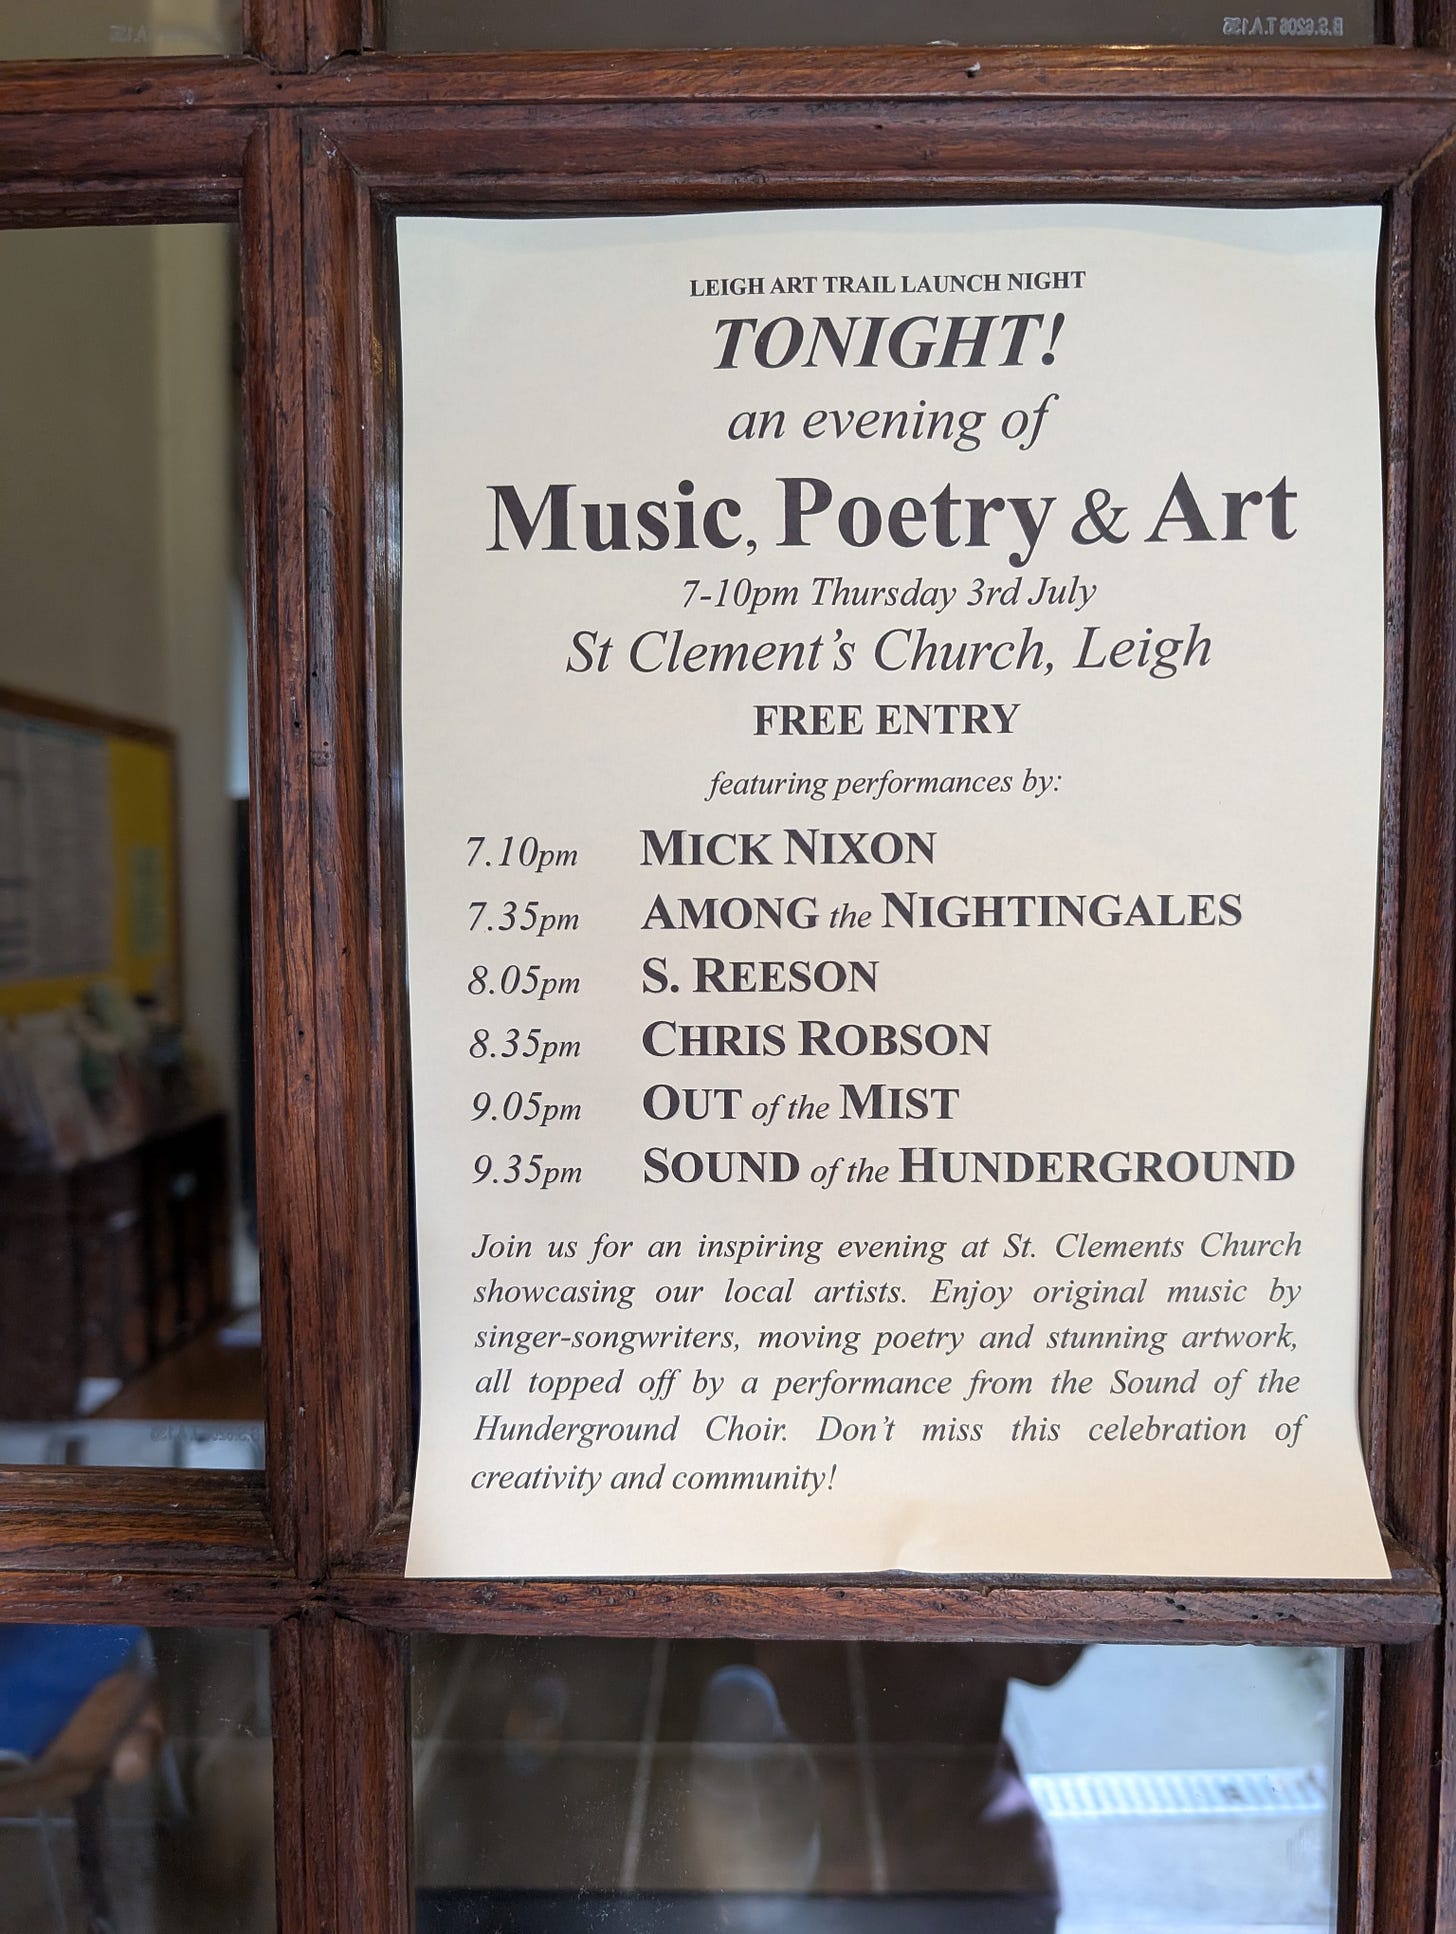 LEIGH ART TRAIL LAUNCH NIGHT
TONIGHT!
an evening of
Music, Poetry & Art
7-10pm Thursday 3rd July
St Clement's Church, Leigh
FREE ENTRY
featuring performances by:
7.10pm MICK NIXON
7.35pm AMONG the NIGHTINGALES
8.05pm S. REESON
8.35pm CHRIS ROBSON
9.05pm OUT of the MIST
9.35pm SOUND of the HUNDERGROUND
Join us for an inspiring evening at St. Clements Church
showcasing our local artists. Enjoy original music by
singer-songwriters, moving poetry and stunning artwork,
all topped off by a performance from the Sound of the
Hunderground Choir. Don't miss this celebration of
creativity and community!